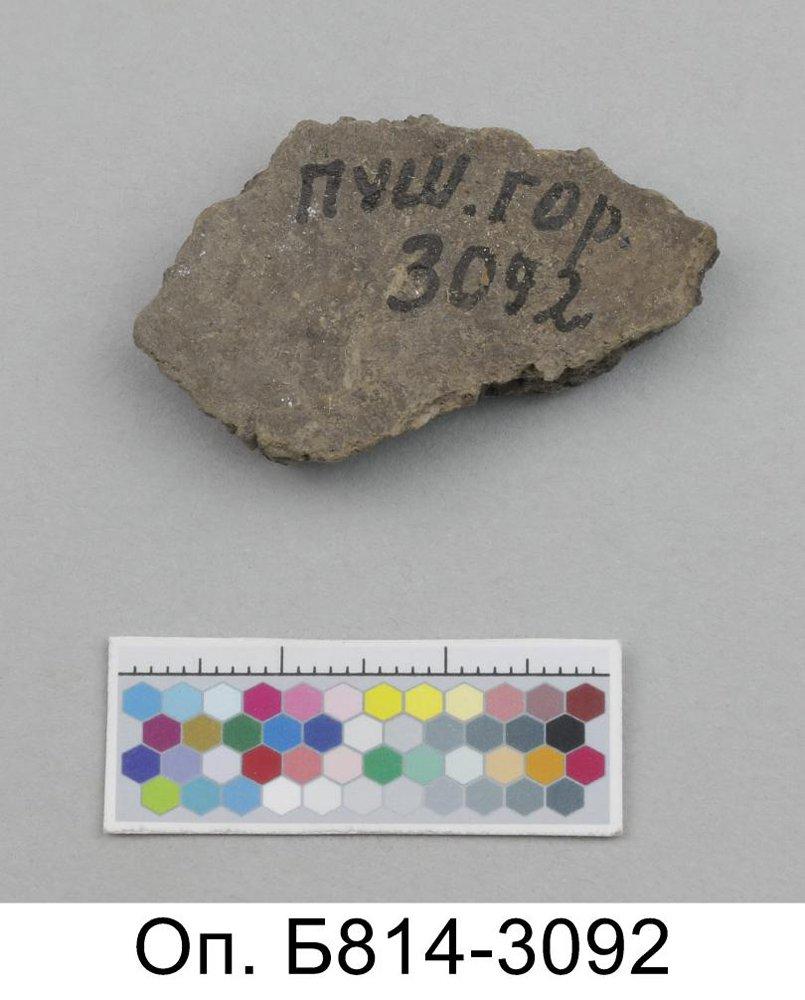 пуш.гор.
3092
Оп. Б814-3092